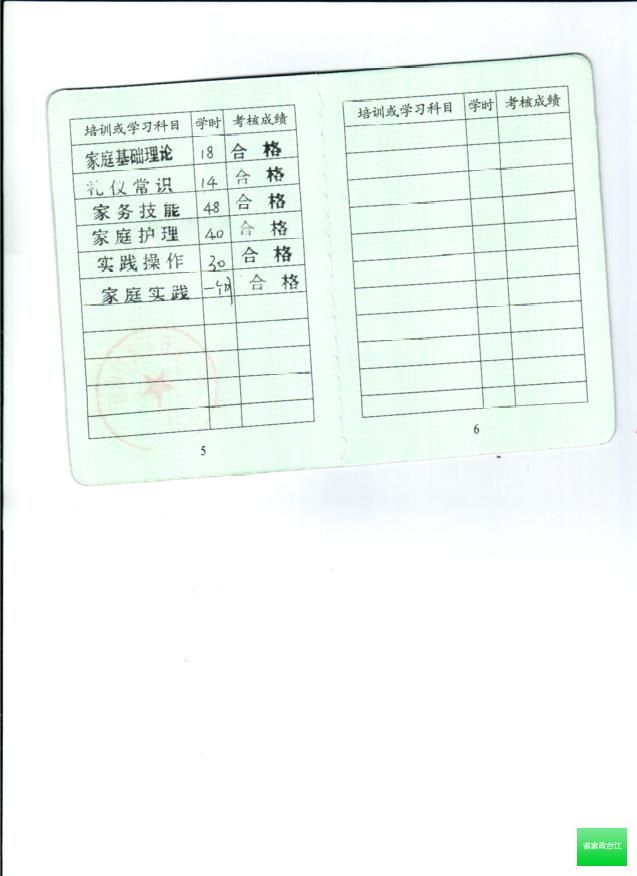 培训或学习科目 学时 考核成绩
家庭基础理论 18 合格
礼仪常识 14 合格
家务技能 48 合格
家庭护理 40 合格
实践操作 30 合格
家庭实践 合格
5
培训或学习科目 学时 考核成绩
6
省家政台江